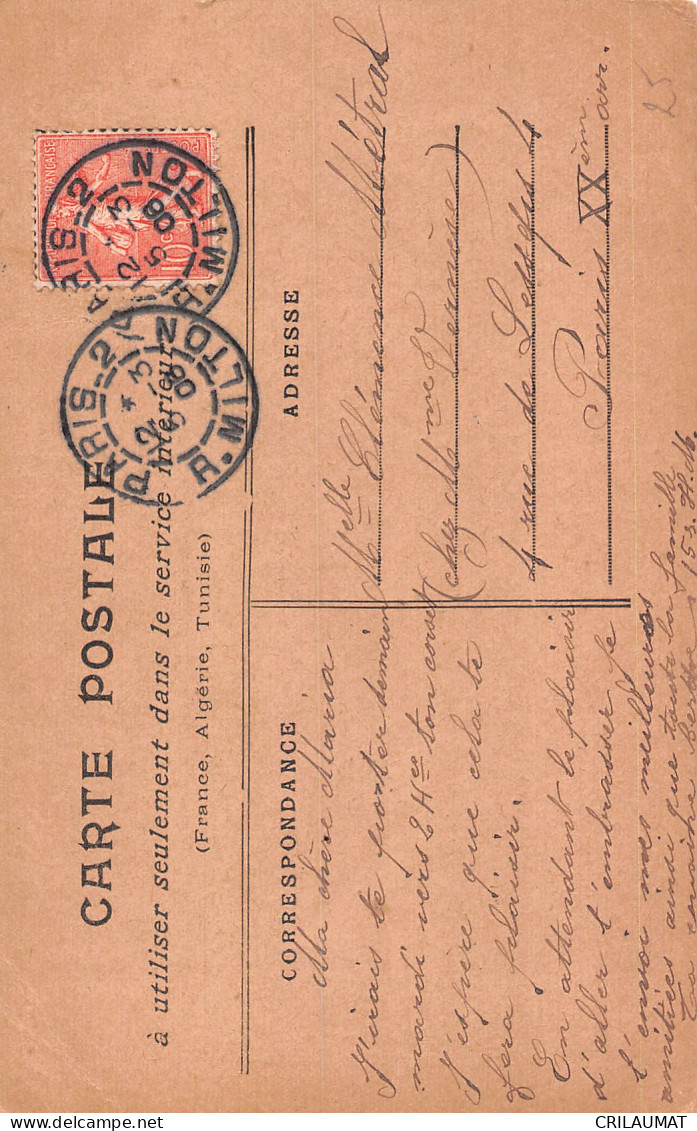 CARTE POSTALE
à utiliser seulement dans le service intérieur
(France, Algérie, Tunisie)
CORRESPONDANCE
Ma chère Maria
J'irais te porter demain
mardi vers 2 Hes ton corset
J'espère que cela te
fera plaisir.
En attendant le plaisir
d'aller t'embrasser je
t'envoi mes meilleures
amitiés ainsi que toute la famille
Ta cousine
ADRESSE
Melle Clémence Métral
(chez Mme Ve Vernière)
4 rue de Lesseps 4
Paris XXème arr.
25
FRANÇAISE
10
PARIS 2
R. MILTON
PARIS 2
R. MILTON
CRILAUMAT